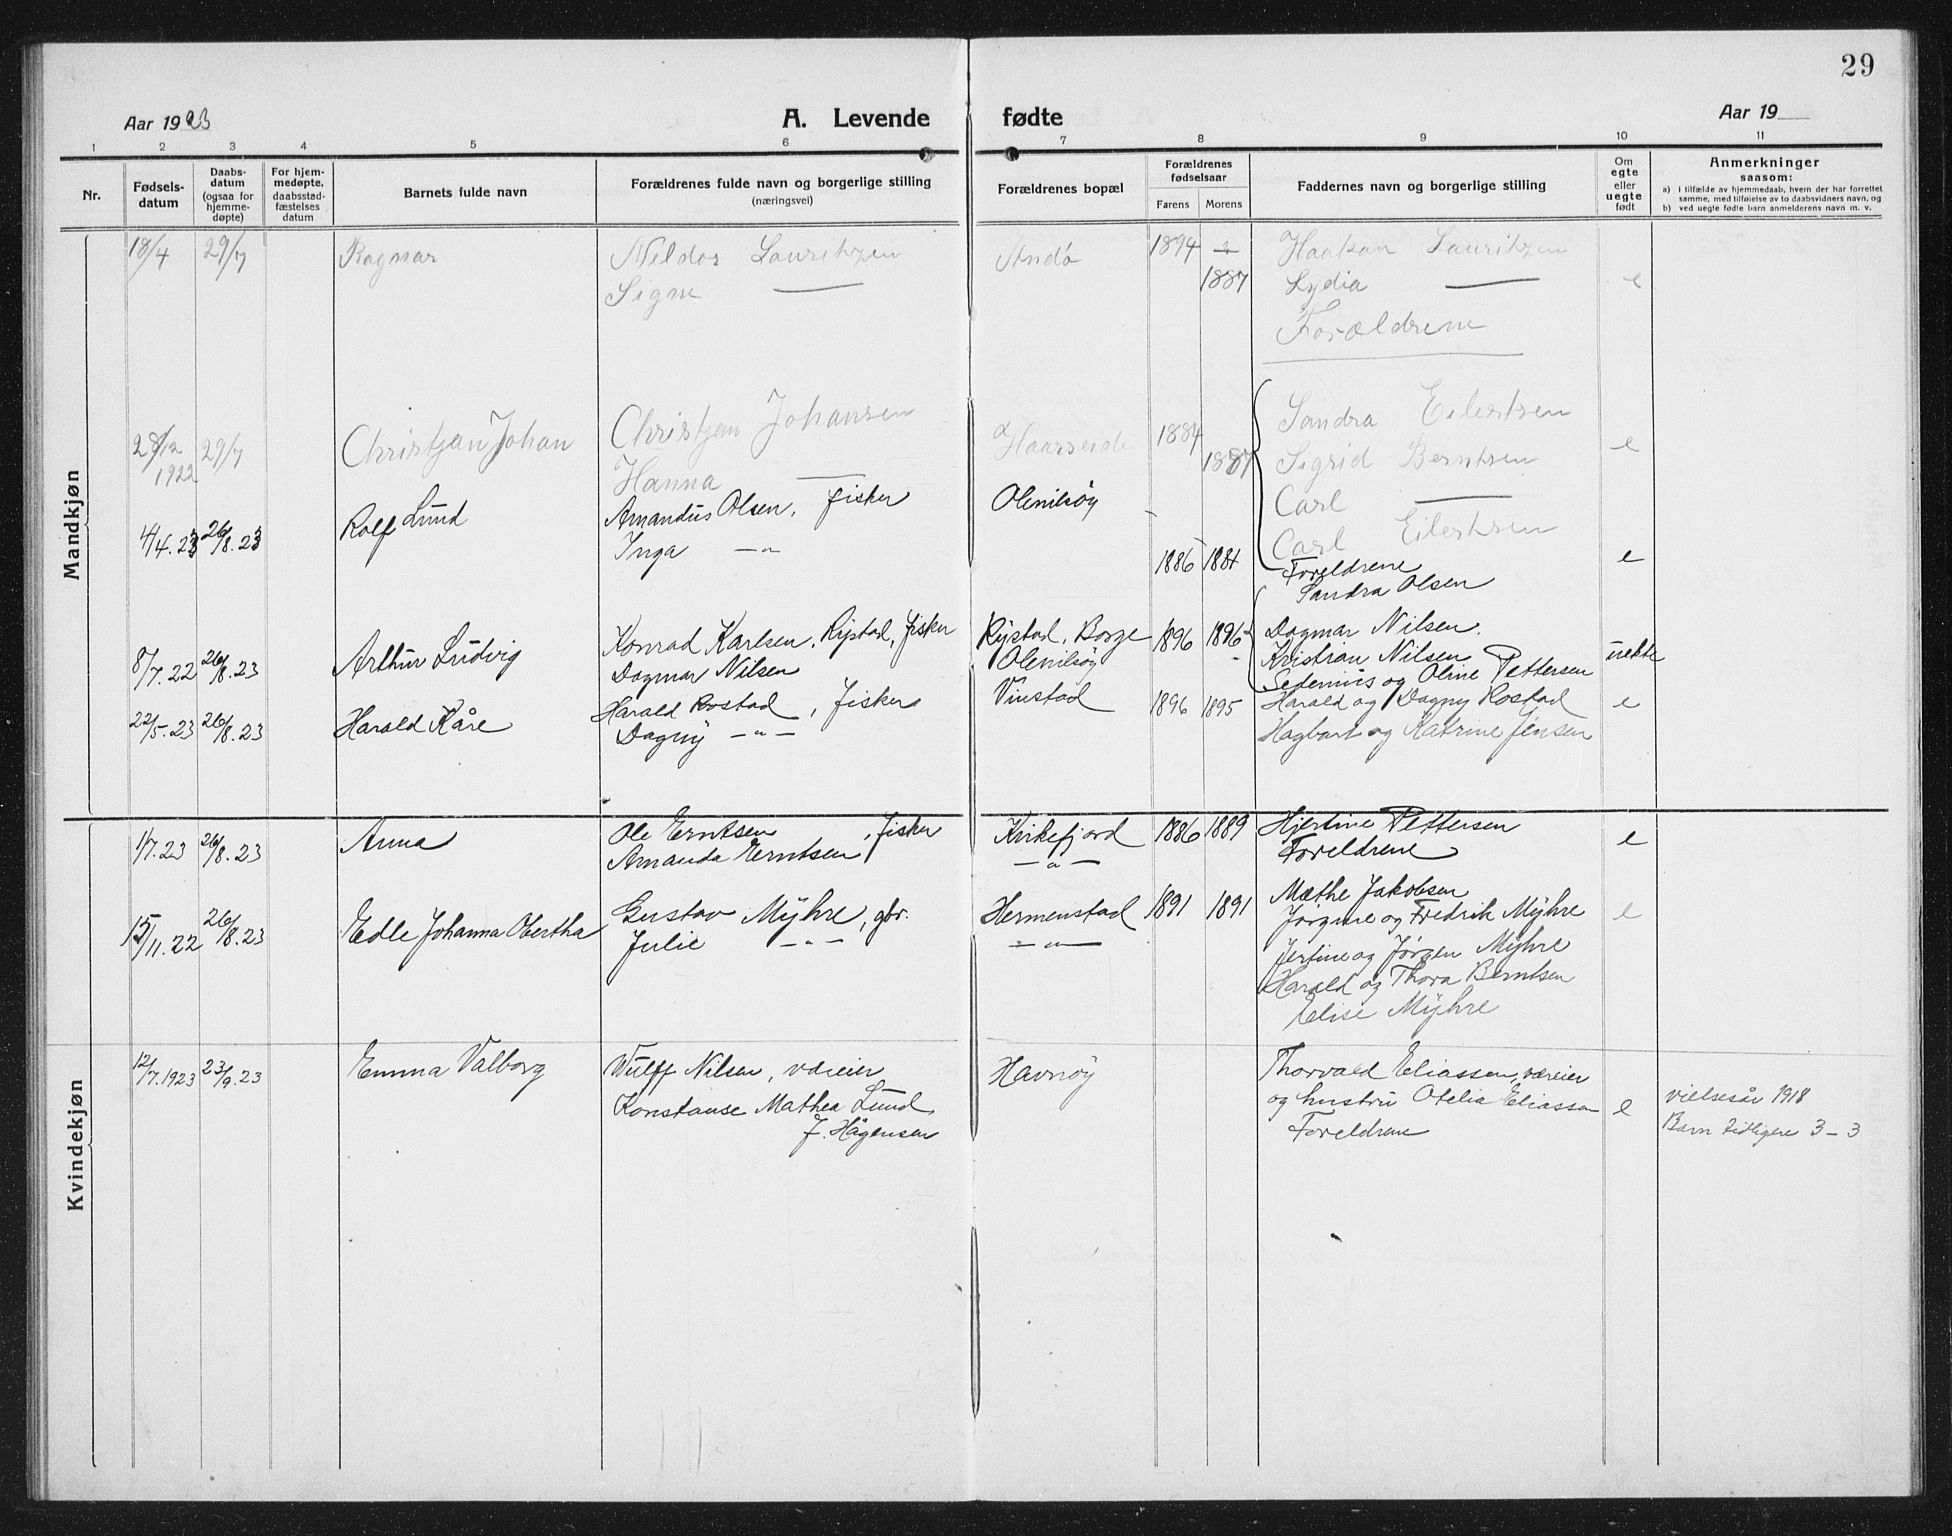 29
Aar 1923
A. Levende fødte
Aar 19
1 2 3 4 5 6 7 8 9 10 11
Nr.
Fødsels-
datum
Daabs-
datum
(ogsaa for
hjemme-
døpte)
For hjem-
medøpte,
daabsstad-
fæstelses
datum
Barnets fulde navn
Forældrenes fulde navn og borgerlige stilling
(næringsvei)
Forældrenes bopæl
Forældrenes
fødselsaar
Farens Morens
Faddernes navn og borgerlige stilling
Om
egte
eller
uegte
født
Anmerkninger
saasom:
a) i tilfælde av hjemmedaab, hvem der har forrettet
samme, med tilføielse av to daabsvidners navn, og
b) ved uegte fødte barn anmelderens navn m. v.
Mandkjøn
18/4 29/7 Ragnar Meldor Lauritzen Andø 1894 Haakon Lauritzen
Signe — 1887 Lydia — e
Forældrene
Christjan Johan Christjan Johansen Haarseide 1884 Sandra Eilertsen
29/7 1922 Hanna — 1887 Sigrid Berntsen e
Carl —
Carl Eilertsen
4/4.23 26/8.23 Rolf Lund Amandus Olsen, fisker Olenilsøy
Inga —"— 1886 1881 Foreldrene e
Sandra Olsen
8/7.22 26/8.23 Arthur Ludvig Konrad Karlsen, Rystad, fisker Rystad, Borge 1896 1896 Dagmar Nilsen.
Dagmar Nilsen Olenilsøy Kristian Nilsen uekte
og Oline Pettersen
22/5.23 26/8.23 Harald Kåre Harald Rostad, fisker Vinstad 1896 1895 Harald og Dagny Rostad e
Dagny —"— Hagbart og Katrine Jensen
Kvindekjøn
1/7.23 26/8.23 Anna Ole Erntsen, fisker Kirkefjord 1886 1889 Hjertine Pettersen
Amanda Erntsen —"— Foreldrene e
15/11.22 26/8.23 Edle Johanna Hertha Gustav Myhre, gbr. Hermenstad 1891 1891 Mæthe Jakobsen
Julie —"— —"— Jørgine og Fredrik Myhre e
Jertine og Jørgen Myhre
Harald og Thora Berntsen
Elise Myhre
12/7.1923 23/9.23 Emma Valborg Wulff Nilsen, væreier Havnøy Thorvald Eliassen, væreier
Konstanse Mathea Lund og hustru Otelia Eliassen e vielsesår 1918
f. Hågensen Foreldrene Barn tidligere 3 – 3